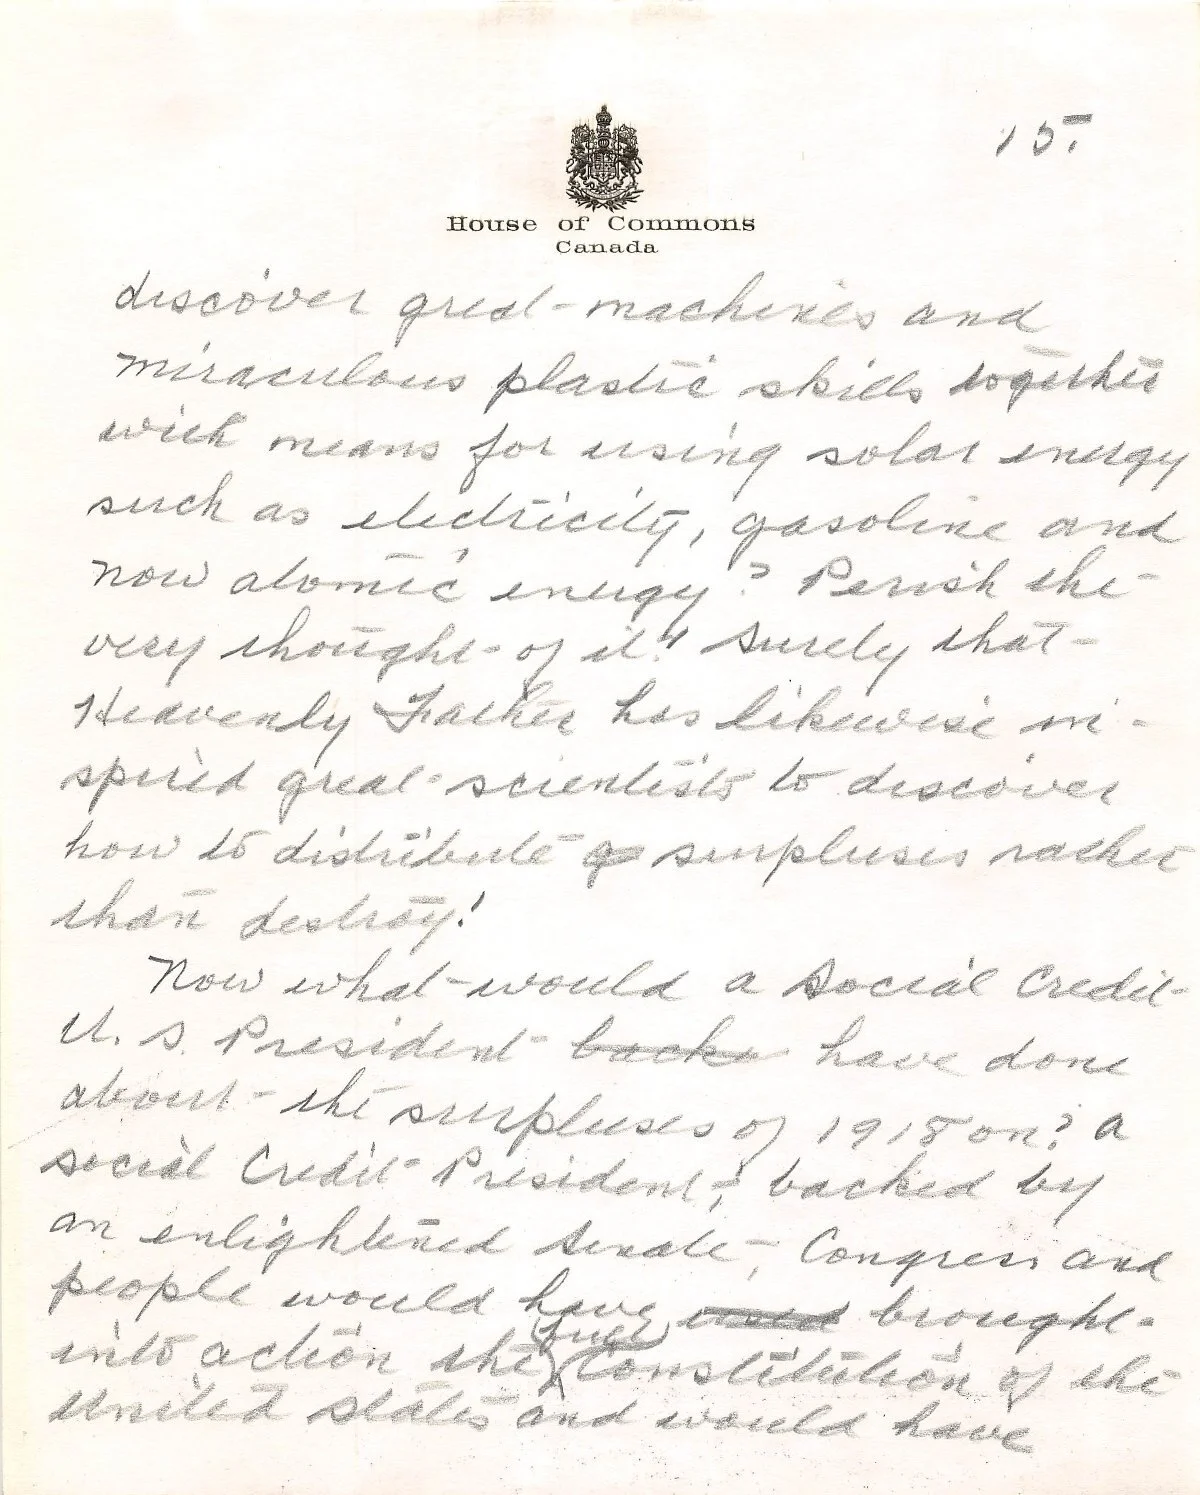 15.
House of Commons
Canada
discover great machines and
miraculous plastic skills together
with means for using solar energy
such as electricity, gasoline and
now atomic energy? Perish the
very thought of it!" Surely that
Heavenly Father has likewise in-
spired great scientists to discover
how to distribute surpluses rather
than destroy!
Now what would a Social Credit
U.S. President backs have done
about the surpluses of 1918 on? A
Social Credit President, backed by
an enlightened Senate, Congress and
people would have used brought
into action the full Constitution of the
United States and would have